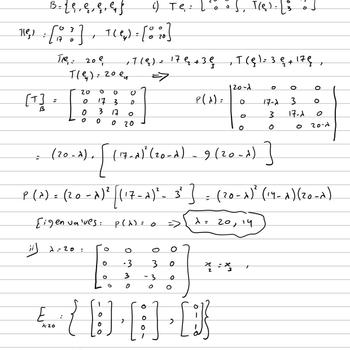 B = {e₁, e₂, e₃, e₄} i) T e₁ = [20 0; 0 0], T(e₂) = [0 17; 3 0]
T(e₃) = [0 3; 17 0], T(e₄) = [0 0; 0 20]
T e₁ = 20 e₁, T(e₂) = 17 e₂ + 3 e₃, T(e₃) = 3 e₂ + 17 e₃,
T(e₄) = 20 e₄ ⇒
[T]_B = [20 0 0 0; 0 17 3 0; 0 3 17 0; 0 0 0 20] P(λ) = |20-λ 0 0 0; 0 17-λ 3 0; 0 3 17-λ 0; 0 0 0 20-λ|
= (20-λ) . [(17-λ)²(20-λ) - 9(20-λ)]
P(λ) = (20-λ)² [(17-λ)² - 3²] = (20-λ)² (14-λ)(20-λ)
Eigenvalues: P(λ) = 0 ⇒ λ = 20, 14
ii) λ=20: [0 0 0 0; 0 -3 3 0; 0 3 -3 0; 0 0 0 0] x₂ = x₃,
E_λ=20 = {[1; 0; 0; 0], [0; 0; 0; 1], [0; 1; 1; 0]}